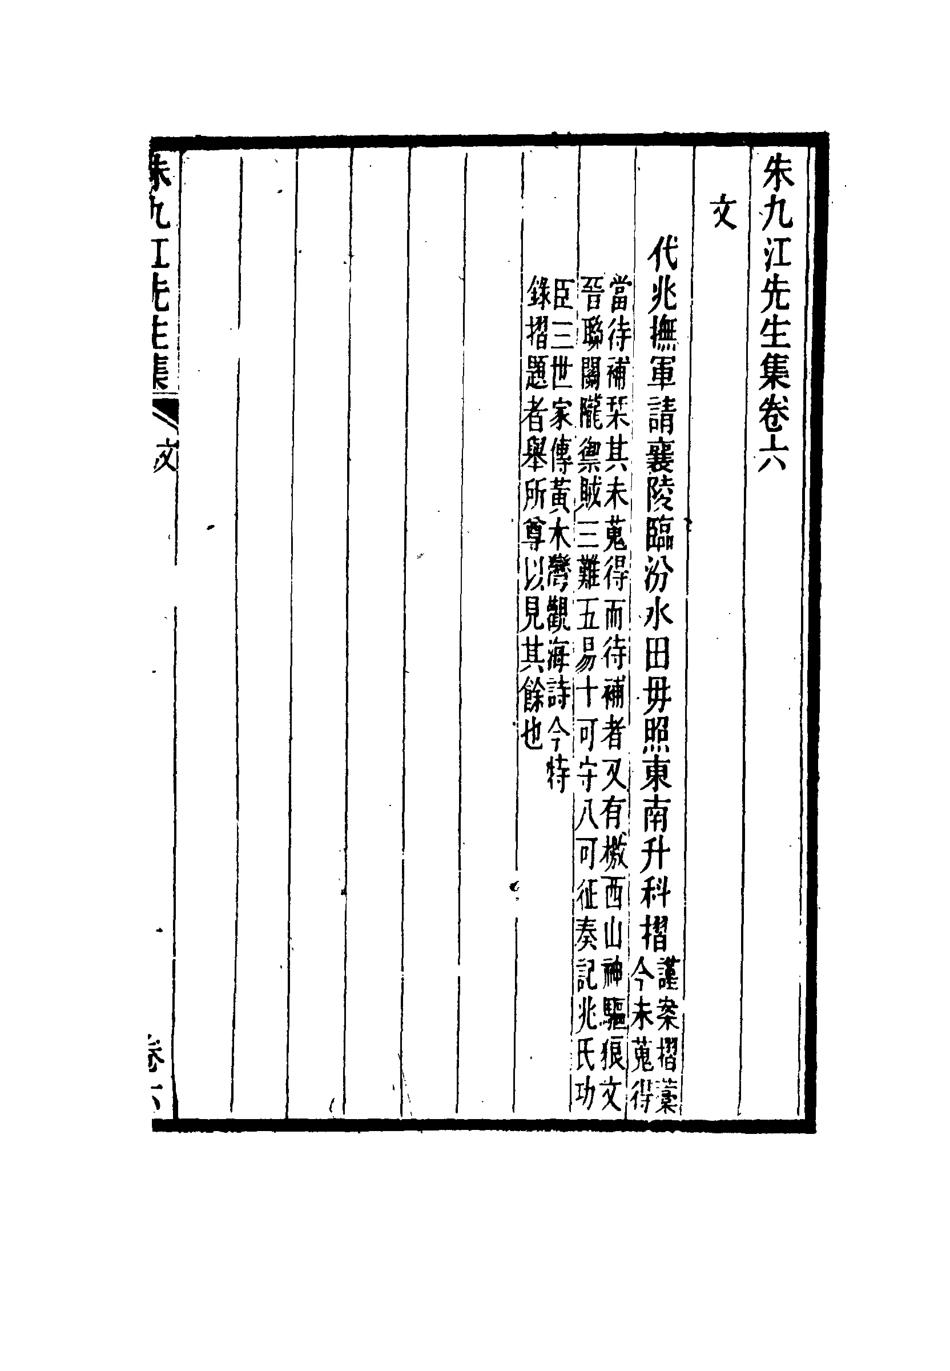 朱九江先生集卷六
文
代兆撫軍請襄陵臨汾水田毋照東南升科摺謹案摺藁
今未蒐得
當待補栞其未蒐得而待補者又有檄西山神驅狼文
晉聯關隴禦賊三難五易十可守八可征奏記兆氏功
臣三世家傳黃木灣觀海詩今特
錄摺題者舉所尊以見其餘也
朱九江先生集
文
卷六